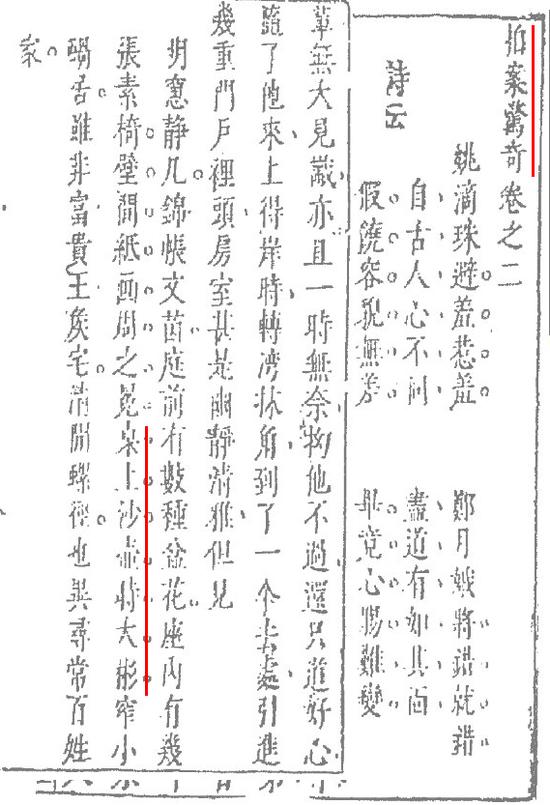 拍案驚奇卷之二
姚滴珠避羞惹羞　鄭月娥將錯就錯
詩云
自古人心不同　盡道有如其面
假饒容貌無差　畢竟心腸難變
輩無大見識亦且一時無奈拗他不過還只道好心
隨了他來上得岸時轉湾抹角到了一个去處引進
幾重門戶裡頭房室甚是幽靜清雅但見
明窓静几錦帳文茵庭前有數種盆花座內有幾
張素椅壁間紙画周之冕桌上沙壺時大彬窄小
蝸舍雖非富貴王侯宅清閒螺徑也異尋常百姓
家